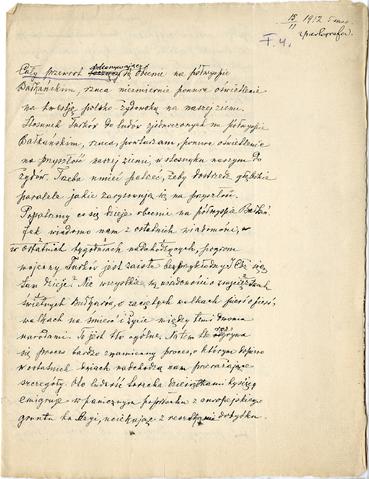 15/11 1912 5 num.
F. 4.
Cały przewrót dokonywujący się obecnie na półwyspie
Bałkańskim, rzuca niezmiernie ponure oświetlenie
na kwestję polsko-żydowską na naszej ziemi.
Stosunek Turków do ludów zjednoczonych na półwyspie
Bałkańskim, rzuca, powtarzam, ponure oświetlenie
na przyszłość naszej ziemi, w stosunku naszym do
żydów. Trzeba umieć patrzeć, żeby dostrzedz głębokie
paralele jakie zarysowują się na przyszłość.
Popatrzmy co się dzieje obecnie na półwyspie Bałkań.
Jak wiadomo nam z ostatnich wiadomości, w
w ostatnich tygodniach nadchodzących, pogrom
wojenny Turków jest zaiste bezprzykładny. Cóż się
tam dzieje? Nie wszystkie są wiadomości o zwycięztwach
świetnych Bułgarów, o zaciętych walkach pierś o pierś,
walkach na śmierć i życie między temi dwoma
narodami. To jest tło ogólne. Na tem tle odgrywa
się proces bardzo znamienny proces, o którym dopiero
w ostatnich dniach nadchodzą nam przerażające
szczegóły. Oto ludność turecka dziesiątkami tysięcy
emigruje w panicznym popłochu z europejskiego
gruntu do Azyi, uciekając z resztkami dobytku.